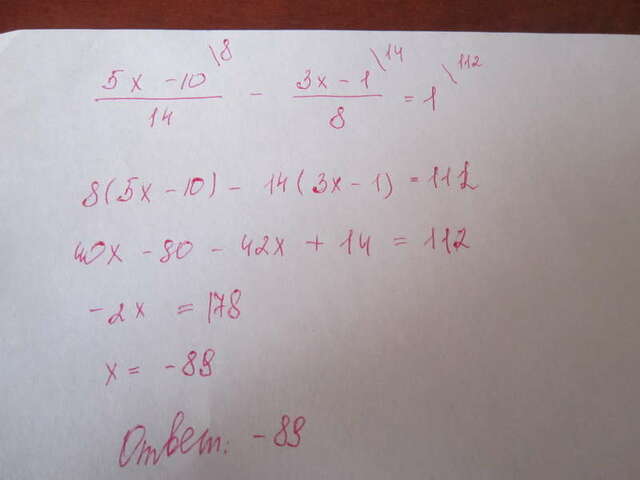 (5x - 10)/14 \8 - (3x - 1)/8 \14 = 1 \112
8(5x - 10) - 14(3x - 1) = 112
40x - 80 - 42x + 14 = 112
-2x = 178
x = -89
Ответ: -89